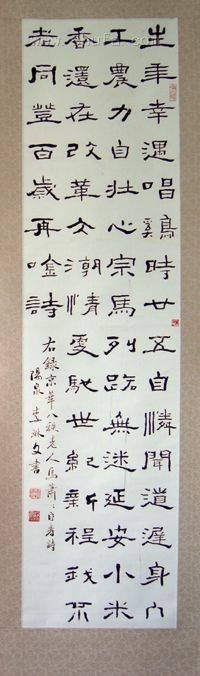 生年幸遇唱鷄時廿五自憐聞道遲身入
工農力自壯心宗馬列路無迷延安小米
香還在改革大潮情更馳世紀新程我不
老同登百歲再唫詩
右錄京華八秩老人馬蕭〻自壽詩
陽泉李文書